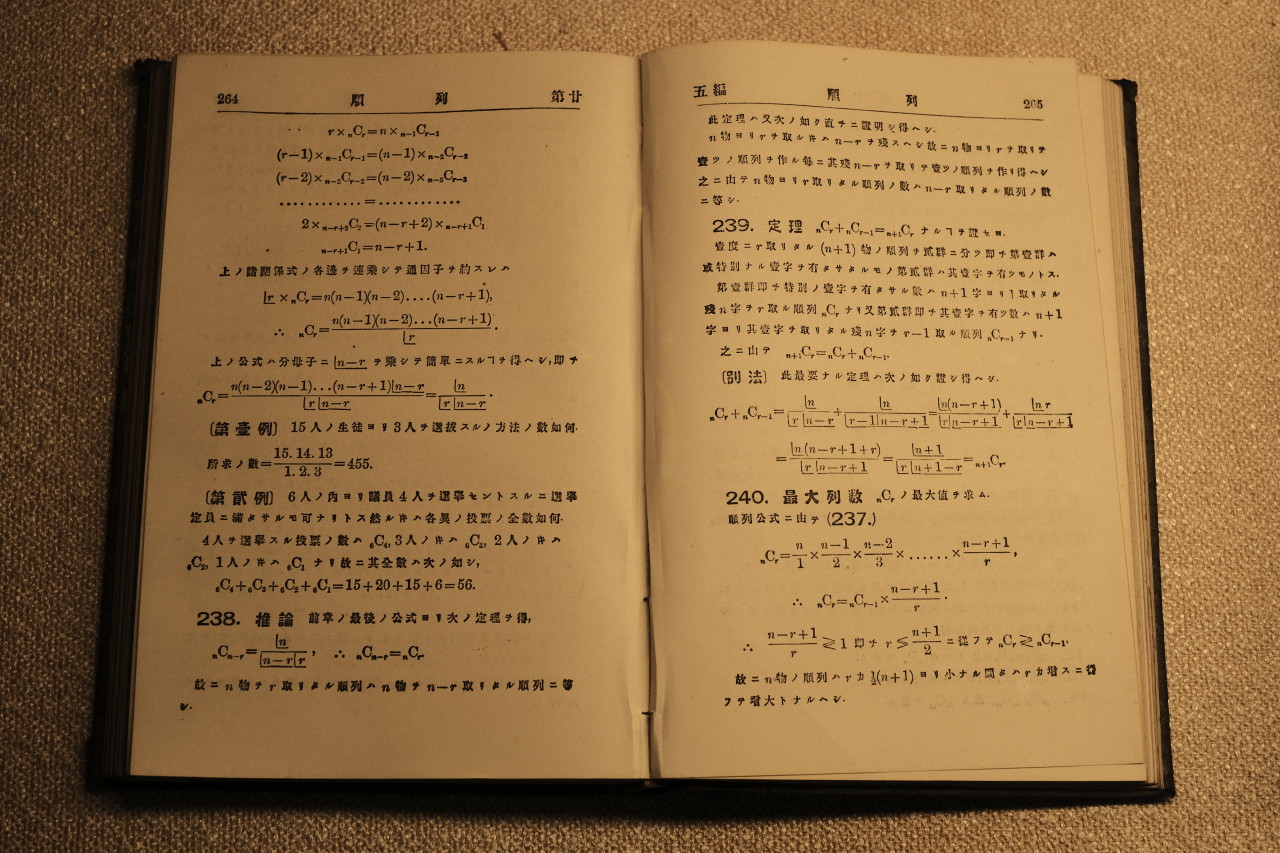 264 順列 第廿
r×ₙCᵣ=n×ₙ₋₁Cᵣ₋₁
(r−1)×ₙ₋₁Cᵣ₋₁=(n−1)×ₙ₋₂Cᵣ₋₂
(r−2)×ₙ₋₂Cᵣ₋₂=(n−2)×ₙ₋₃Cᵣ₋₃
............=............
2×ₙ₋ᵣ₊₂C₂=(n−r+2)×ₙ₋ᵣ₊₁C₁
ₙ₋ᵣ₊₁C₁=n−r+1.
上ノ諸關係式ノ各邊ヲ連乘シテ通因子ヲ約スレハ
|r ×ₙCᵣ=n(n−1)(n−2)....(n−r+1),
∴ ₙCᵣ=n(n−1)(n−2)...(n−r+1)/|r.
上ノ公式ハ分母子ニ|n−r ヲ乘シテ簡單ニスルヿヲ得ヘシ,即チ
ₙCᵣ=n(n−2)(n−1)...(n−r+1)|n−r/|r|n−r=|n/|r|n−r.
〔第壹例〕 15人ノ生徒ヨリ3人ヲ選拔スルノ方法ノ數如何.
所求ノ數=15.14.13/1.2.3=455.
〔第貳例〕 6人ノ内ヨリ議員4人ヲ選擧セントスルニ選擧
定員ニ滿タサルモ可ナリトス然ルキハ各異ノ投票ノ全數如何.
4人ヲ選擧スル投票ノ數ハ ₆C₄, 3人ノキハ ₆C₃, 2人ノキハ
₆C₂, 1人ノキハ ₆C₁ ナリ故ニ其全數ハ次ノ如シ,
₆C₄+₆C₃+₆C₂+₆C₁=15+20+15+6=56.
238. 推論 前章ノ最後ノ公式ヨリ次ノ定理ヲ得,
ₙCₙ₋ᵣ=|n/|n−r|r, ∴ ₙCₙ₋ᵣ=ₙCᵣ
故ニn物ヲr取リタル順列ハn物ヲn−r取リタル順列ニ等
シ.
五編 順列 265
此定理ハ又次ノ如ク直チニ證明シ得ヘシ.
n物ヨリrヲ取ルキハn−rヲ殘スヘシ故ニn物ヨリrヲ取リテ
壹ツノ順列ヲ作ル每ニ其殘n−rヲ取リテ壹ツノ順列ヲ作リ得ヘシ
之ニ由テn物ヨリr取リタル順列ノ數ハn−r取リタル順列ノ數
ニ等シ.
239. 定理 ₙCᵣ+ₙCᵣ₋₁=ₙ₊₁Cᵣ ナルヿヲ證セヨ.
壹度ニr取リタル (n+1) 物ノ順列ヲ貳群ニ分ツ即チ第壹群ハ
或特別ナル壹字ヲ有タサルモノ第貳群ハ其壹字ヲ有ツモノトス.
第壹群即チ特別ノ壹字ヲ有タサル數ハn+1字ヨリ1取リタル
殘n字ヲr取ル順列ₙCᵣナリ又第貳群即チ其壹字ヲ有ツ數ハn+1
字ヨリ其壹字ヲ取リタル殘n字ヲr−1取ル順列ₙCᵣ₋₁ナリ.
之ニ由テ ₙ₊₁Cᵣ=ₙCᵣ+ₙCᵣ₋₁.
〔別法〕 此最要ナル定理ハ次ノ如ク證シ得ヘシ.
ₙCᵣ+ₙCᵣ₋₁=|n/|r|n−r+|n/|r−1|n−r+1=|n(n−r+1)/|r|n−r+1+|n r/|r|n−r+1
=|n(n−r+1+r)/|r|n−r+1=|n+1/|r|n+1−r=ₙ₊₁Cᵣ.
240. 最大列數 ₙCᵣノ最大値ヲ求ム.
順列公式ニ由テ (237.)
ₙCᵣ=n/1×n−1/2×n−2/3×......×n−r+1/r,
∴ ₙCᵣ=ₙCᵣ₋₁×n−r+1/r.
∴ n−r+1/r≷1 即チ r≶n+1/2 ニ從フテ ₙCᵣ≷ₙCᵣ₋₁,
故ニn物ノ順列ハrカ½(n+1)ヨリ小ナル間タハrカ增スニ從
フテ增大トナルヘシ.